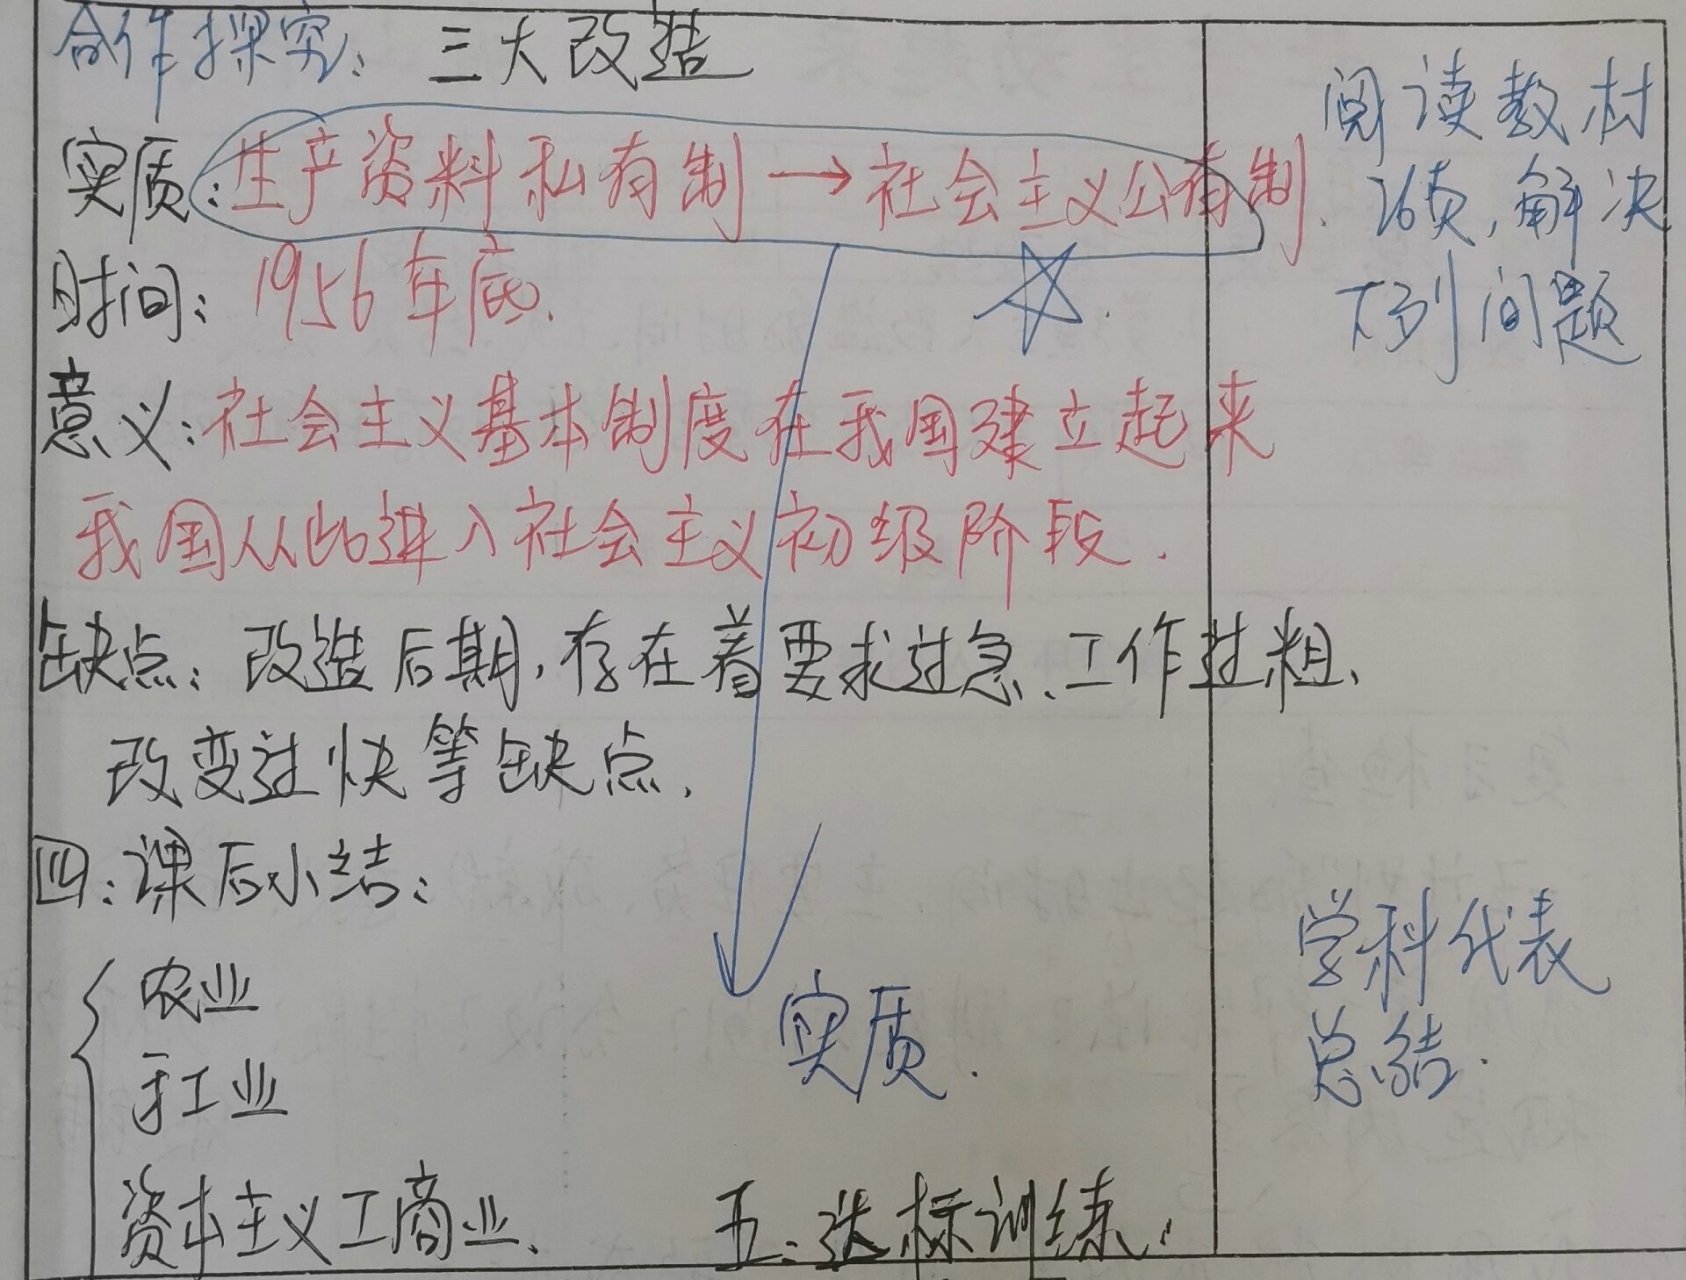 合作探究：三大改造
实质：生产资料私有制→社会主义公有制.
时间：1956年底.
意义：社会主义基本制度在我国建立起来
我国从此进入社会主义初级阶段.
缺点：改造后期,存在着要求过急、工作过粗、
改变过快等缺点.
四：课后小结：
农业
手工业
资本主义工商业、
实质.
五：达标训练.
阅读教材
26页,解决
下列问题
学科代表
总结.